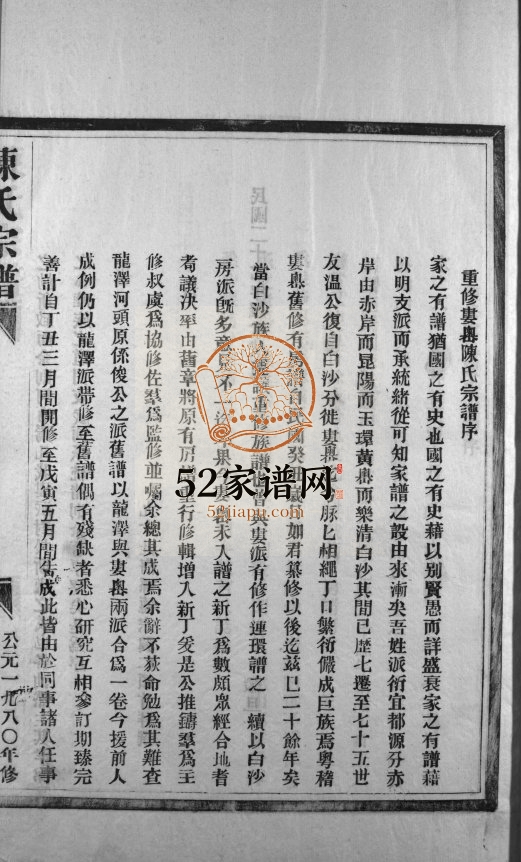 重修婁嶴陳氏宗譜序
家之有譜猶國之有史也國之有史藉以別賢愚而詳盛衰家之有譜藉
以明支派而承統緒從可知家譜之設由來漸矣吾姓派衍宜都源分赤
岸由赤岸而昆陽而玉環黃嶴而樂清白沙其間已歷七遷至七十五世
友溫公復自白沙分徙婁嶴 脉匕相繩丁口繁衍儼成巨族焉粵稽
婁嶴舊修有房譜自民國癸 如君纂修以後迄茲巳二十餘年矣
當白沙族 重 族譜 與婁派有修作連環譜之 續以白沙
房派既多意見不一 果 婁嶴未入譜之新丁爲數頗眾經合地耆
耆議决率由舊章將原有房 重行修輯增入新丁爰是公推鑄羣爲主
修叔虞爲協修佐羣爲監修並囑余總其成焉余辭不获命勉爲其難查
龍澤河頭原係俊公之派舊譜以龍澤與婁嶴兩派合爲一卷今援前人
成例仍以龍澤派帶修至舊譜偶有残缺者悉心研究互相參訂期臻完
善計自丁丑三月間開修至戊寅五月間告成此皆由於同事諸人任事
陳氏宗譜
公元一九八0年修
民國二十
52家谱网
52jiapu.com